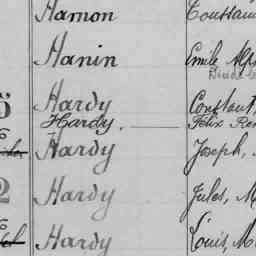 Hamon Constan
Hanin Emile Alph
Hardy Constant,
Hardy, Félix Ren
Hardy Joseph,
2 Hardy Jules, M
Hardy Louis, M